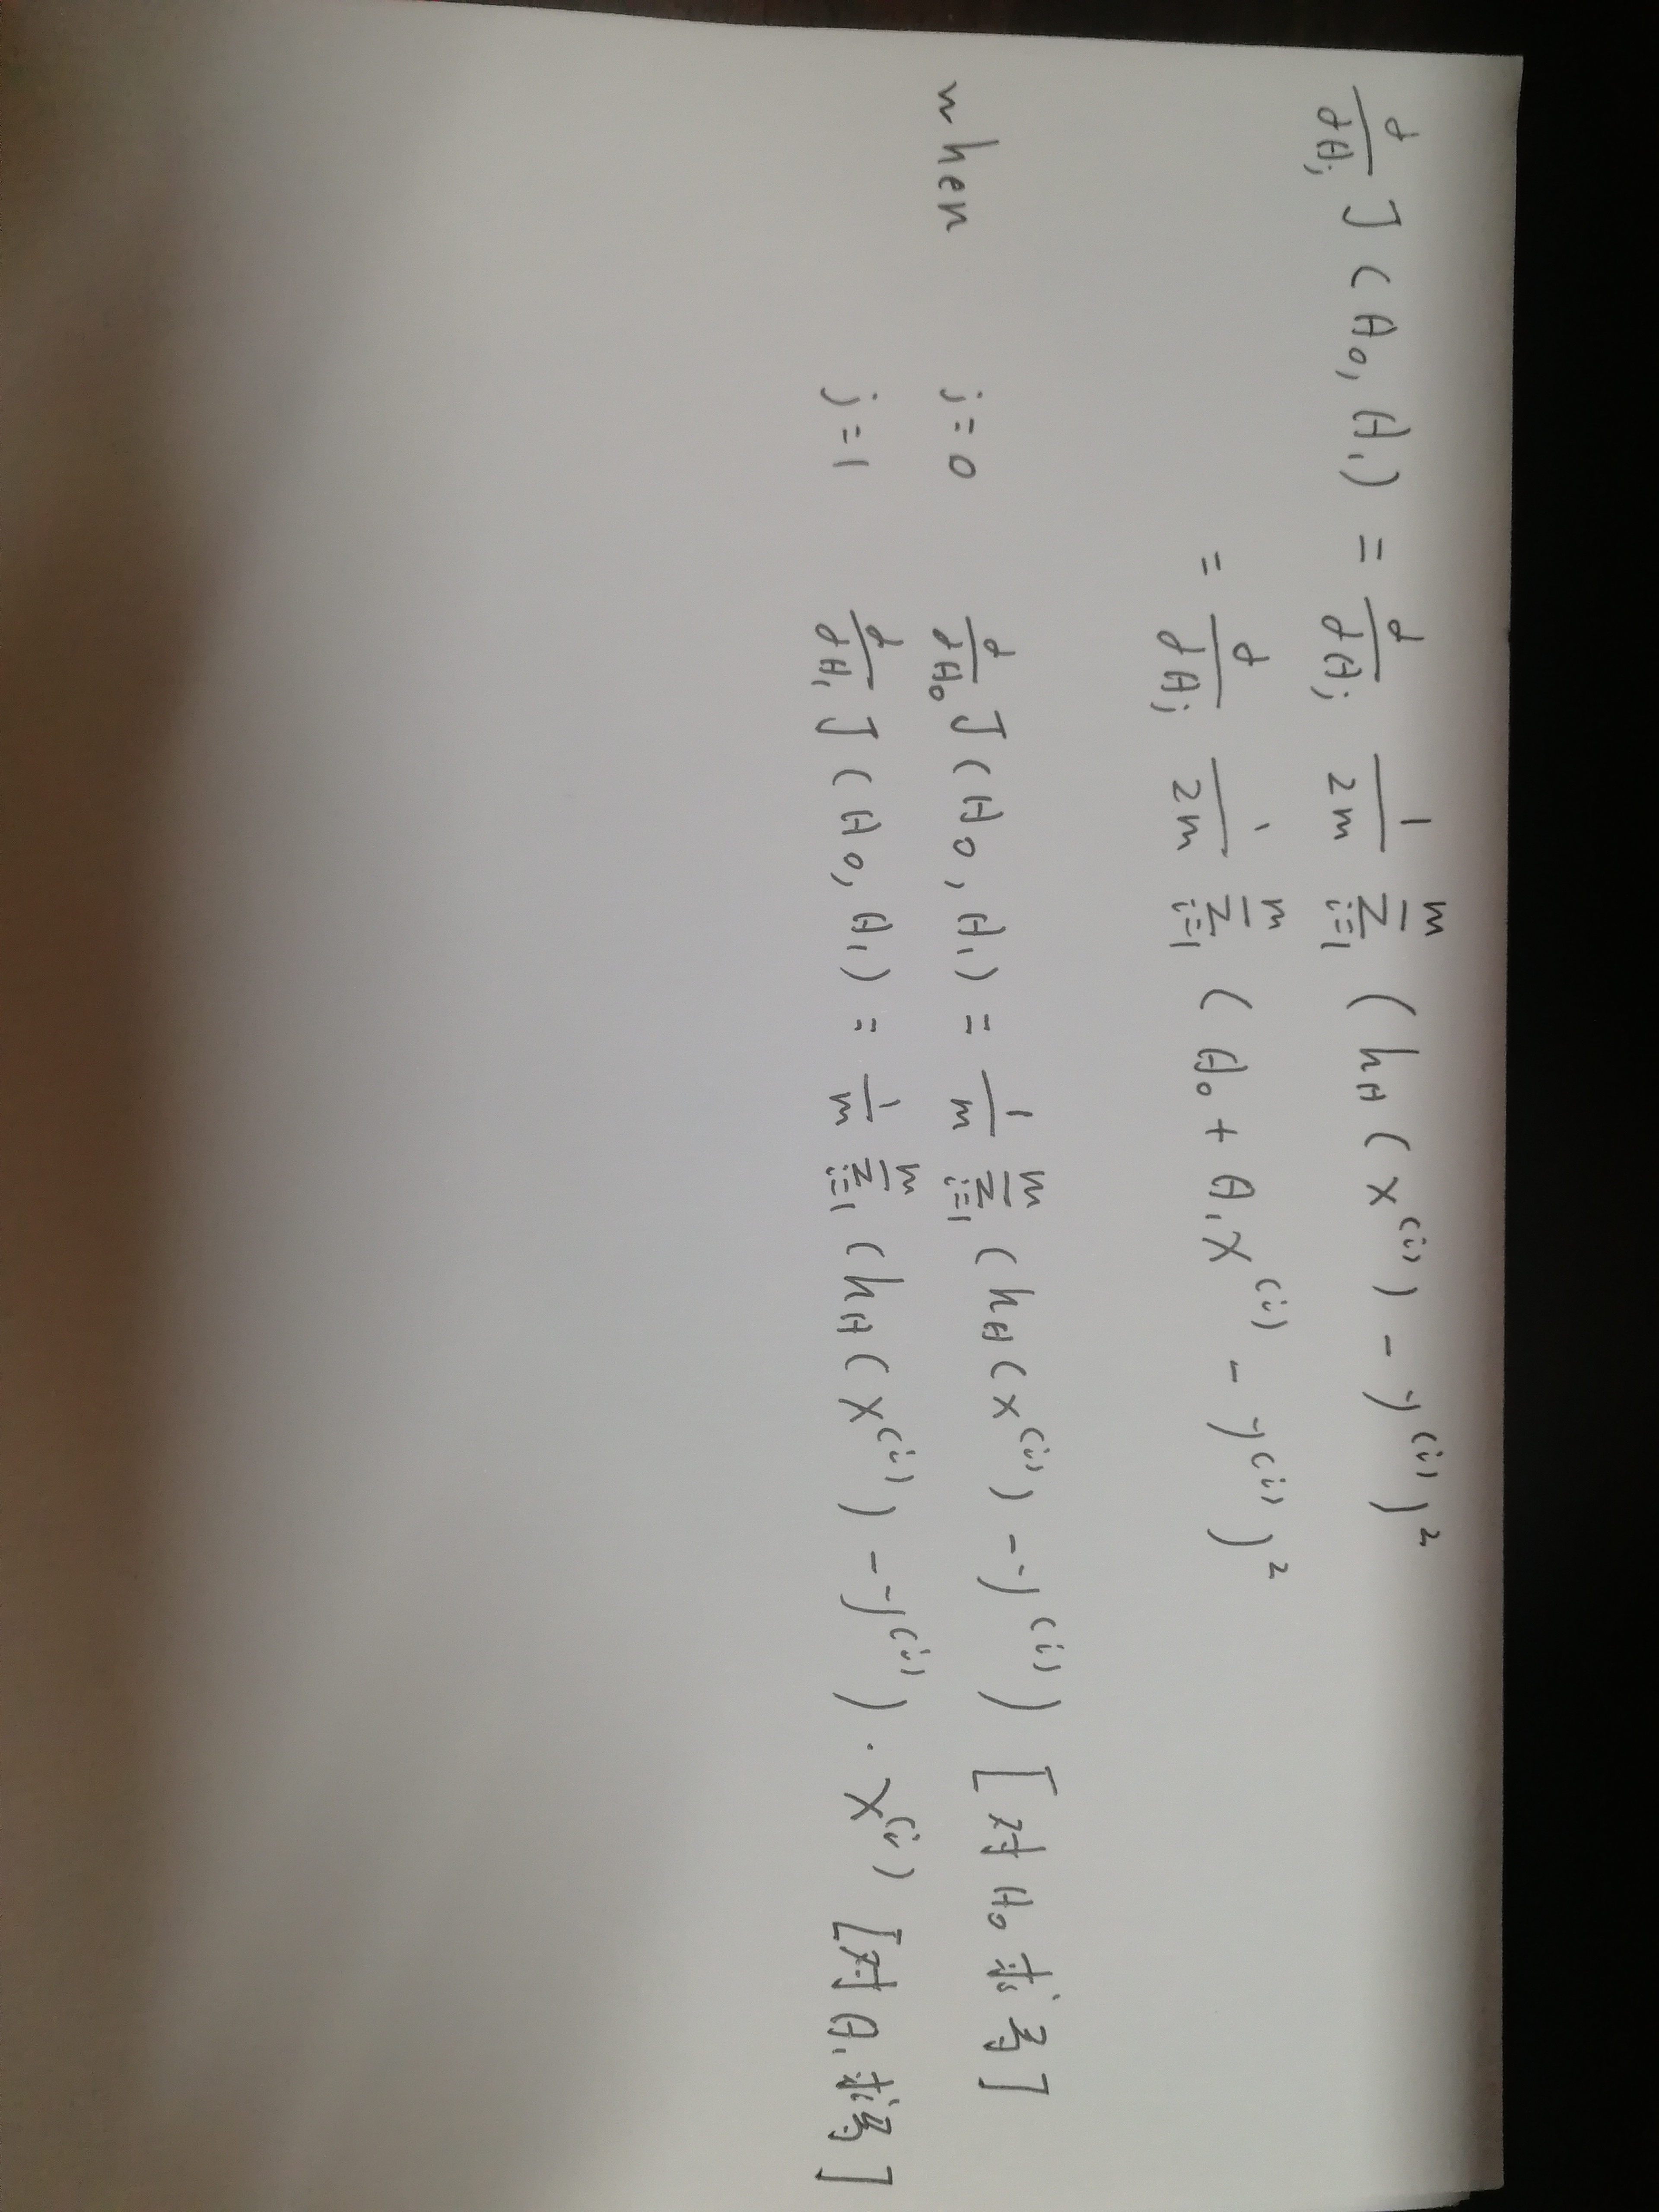 ∂/∂θj J(θ₀, θ₁) = ∂/∂θj 1/2m Σ_{i=1}^{m} (hθ(x⁽ⁱ⁾) - y⁽ⁱ⁾)²
= ∂/∂θj 1/2m Σ_{i=1}^{m} (θ₀ + θ₁x⁽ⁱ⁾ - y⁽ⁱ⁾)²
when j=0 ∂/∂θ₀ J(θ₀, θ₁) = 1/m Σ_{i=1}^{m} (hθ(x⁽ⁱ⁾) - y⁽ⁱ⁾) [对θ₀求导]
j=1 ∂/∂θ₁ J(θ₀, θ₁) = 1/m Σ_{i=1}^{m} (hθ(x⁽ⁱ⁾) - y⁽ⁱ⁾) · x⁽ⁱ⁾ [对θ₁求导]